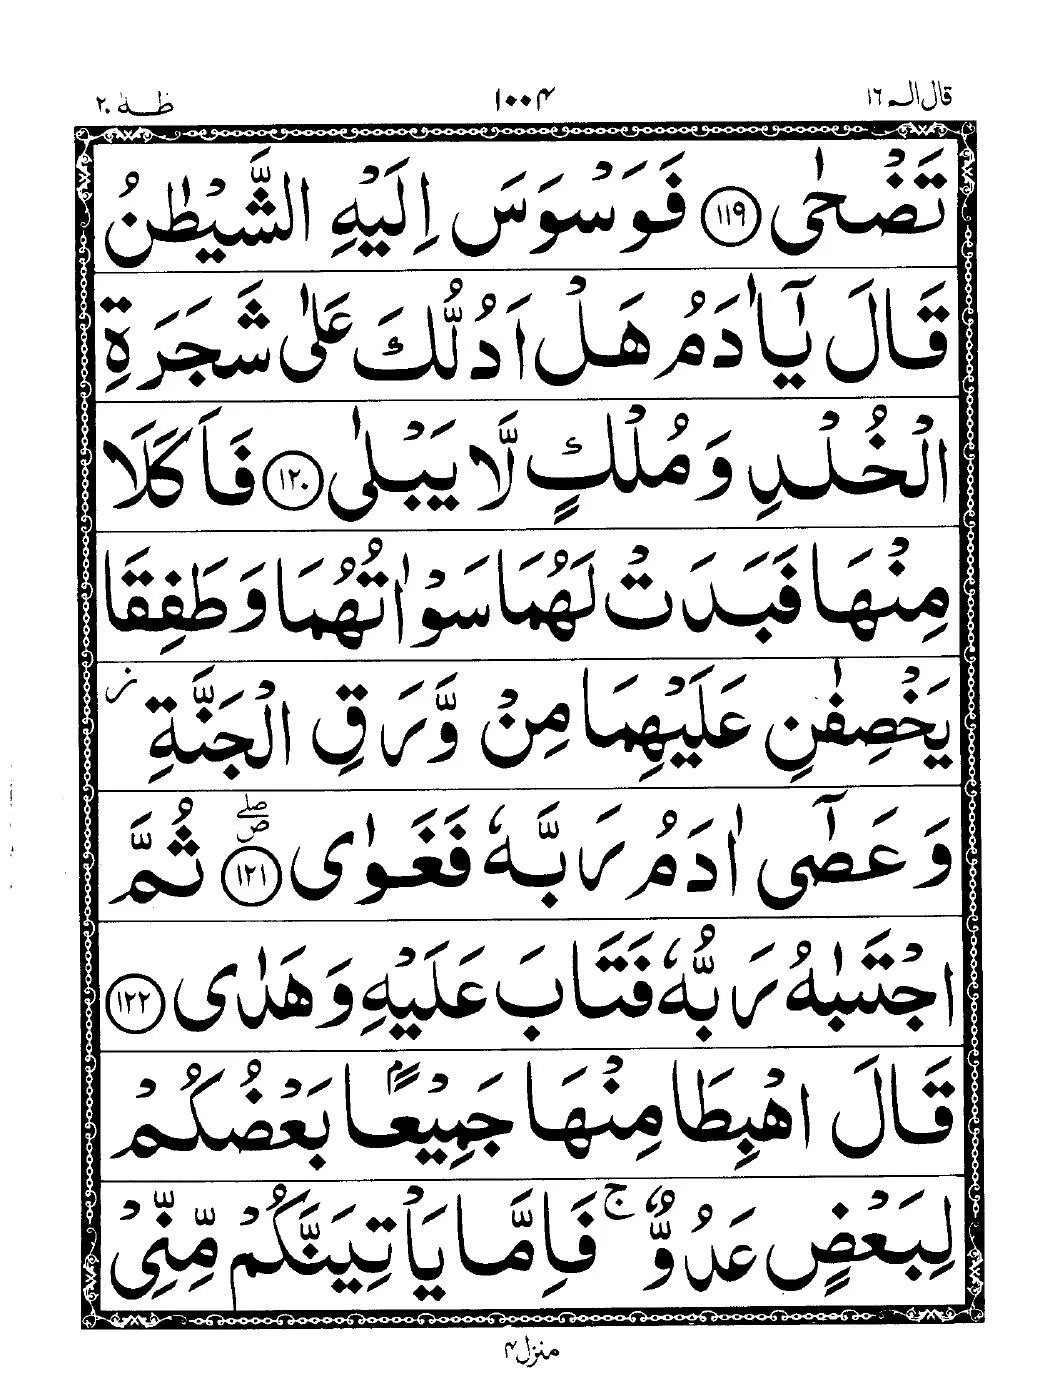 قال الم ١٦
١٠٠٤
طٰهٰ ٢٠
تَضْحٰى ١١٩ فَوَسْوَسَ اِلَيْهِ الشَّيْطٰنُ
قَالَ يٰۤاٰدَمُ هَلْ اَدُلُّكَ عَلٰى شَجَرَةِ
الْخُلْدِ وَ مُلْكٍ لَّا يَبْلٰى ١٢٠ فَاَكَلَا
مِنْهَا فَبَدَتْ لَهُمَا سَوْاٰتُهُمَا وَ طَفِقَا
يَخْصِفٰنِ عَلَيْهِمَا مِنْ وَّرَقِ الْجَنَّةِ ز
وَ عَصٰۤى اٰدَمُ رَبَّهٗ فَغَوٰى ١٢١ صلے ص ثُمَّ
اجْتَبٰىهُ رَبُّهٗ فَتَابَ عَلَيْهِ وَ هَدٰى ١٢٢
قَالَ اهْبِطَا مِنْهَا جَمِيْعًۢا بَعْضُكُمْ
لِبَعْضٍ عَدُوٌّ ج فَاِمَّا يَاْتِيَنَّكُمْ مِّنِّيْ
منزل ٤